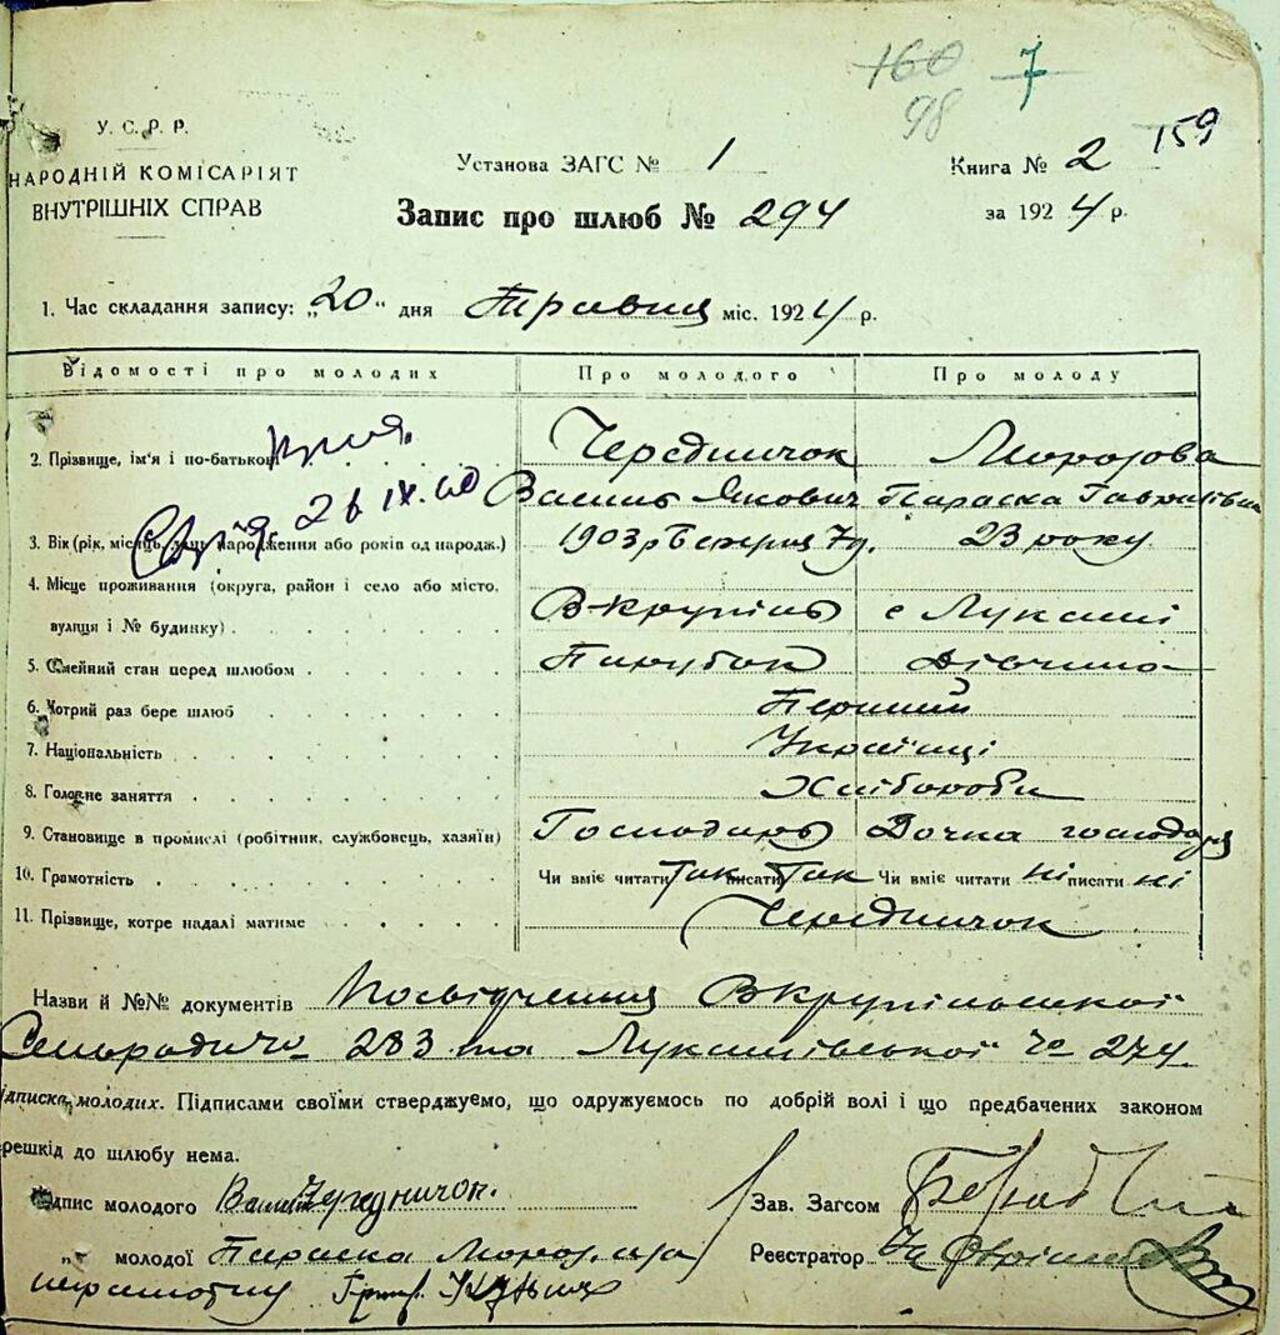 160 7
98
159
У. С. Р. Р.
НАРОДНІЙ КОМІСАРІЯТ
ВНУТРІШНІХ СПРАВ
Установа ЗАГС № 1
Книга № 2
Запис про шлюб № 294
за 1924 р.
1. Час складання запису: „20“ дня Травня міс. 1924 р.
Відомості про молодих Про молодого Про молоду
2. Прізвище, ім'я і по-батькові Чередничок Морозова
26 IX. 40 Василь Якович Параска Гаврилівна
3. Вік (рік, місяць, день народження або років од народж.) 1903 р 7 д. 23 року
4. Місце проживання (округа, район і село або місто,
вулиця і № будинку) Вкрупіль с Лукаші
5. Сімейний стан перед шлюбом Парубок Дівчина
6. Котрий раз бере шлюб Перший
7. Національність Українці
8. Головне заняття Хлібороби
9. Становище в промислі (робітник, службовець, хазяїн) Господарь Дочка господаря
10. Грамотність Чи вміє читати Так писати Так Чи вміє читати ні писати ні
11. Прізвище, котре надалі матиме Чередничок
Назви й №№ документів Посвідчення Вкрупільської
Сільради ч 283 та Лукашівської ч 274
ідписка молодих. Підписами своїми стверджуємо, що одружуємось по добрій волі і що предбачених законом
решкід до шлюбу нема.
Підпис молодого Василь Чередничок.
Зав. Загсом
„ молодої Параска Морозова
Реєстратор